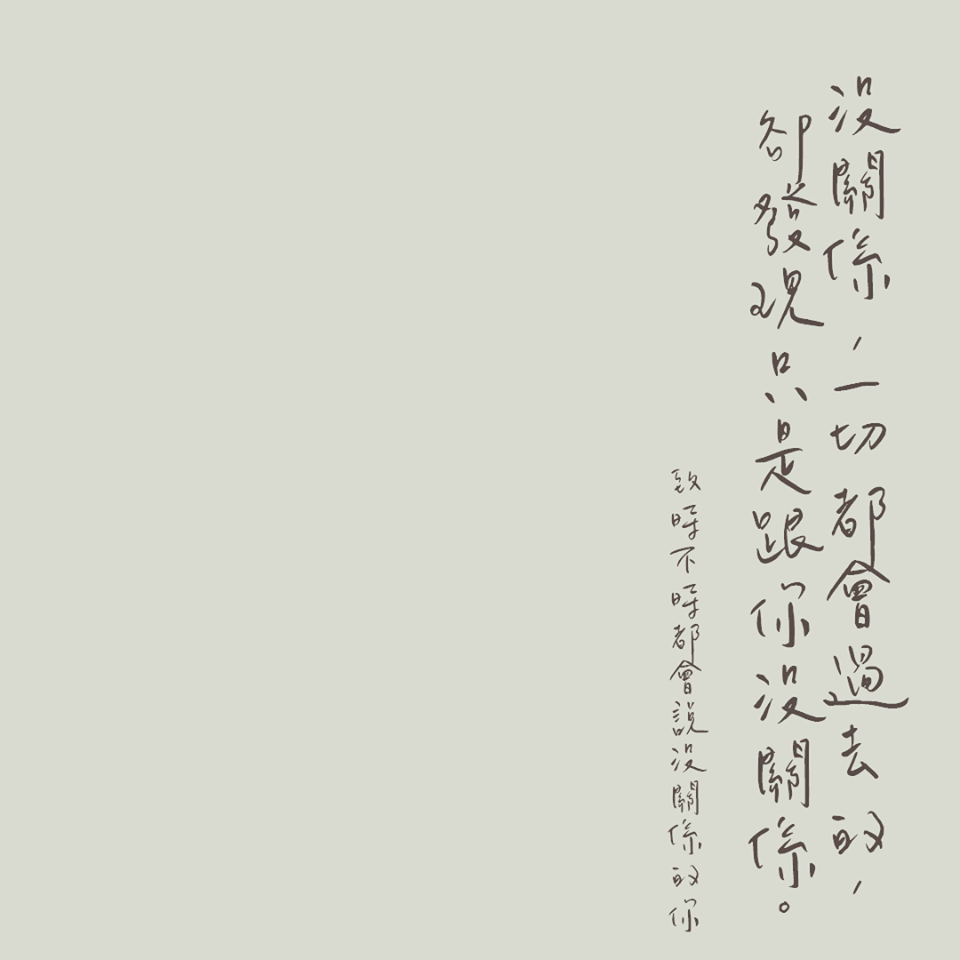 沒關係，一切都會過去的，
卻發現只是跟你沒關係。
致時不時都會說沒關係的你